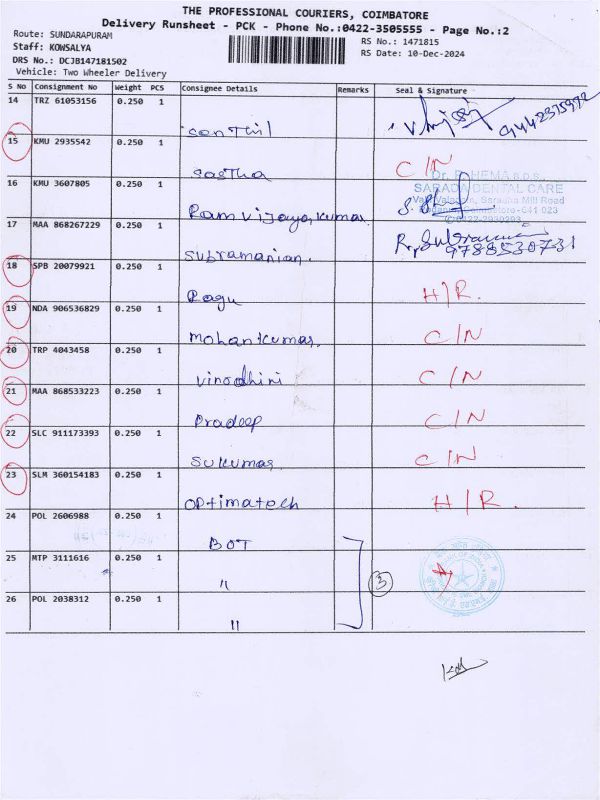 THE PROFESSIONAL COURIERS, COIMBATORE
Delivery Runsheet - PCK - Phone No.:0422-3505555 - Page No.:2
Route: SUNDARAPURAM
Staff: KOWSALYA
DRS No.: DCJB147181502
Vehicle: Two Wheeler Delivery
RS No.: 1471815
RS Date: 10-Dec-2024
S No Consignment No Weight PCS Consignee Details Remarks Seal & Signature
14 TRZ 61053156 0.250 1
Senthil 9442375972
15 KMU 2935542 0.250 1
Sastha C/N
Dr. HEMA B.D.S.,
SARADA DENTAL CARE
16 KMU 3607805 0.250 1
Saradha Mill Road
Ramvijayakumar Coimbatore-641 023
17 MAA 868267229 0.250 1
Subramanian. 9788530731
18 SPB 20079921 0.250 1
Ragu H/R.
19 NDA 906536829 0.250 1
Mohankumar. C/N
20 TRP 4043458 0.250 1
Vinodhini C/N
21 MAA 868533223 0.250 1
Pradeep C/N
22 SLC 911173393 0.250 1
Sukumar C/N
23 SLM 360154183 0.250 1
Optimatech H/R.
24 POL 2606988 0.250 1
BOT
25 MTP 3111616 0.250 1
" 3
26 POL 2038312 0.250 1
"